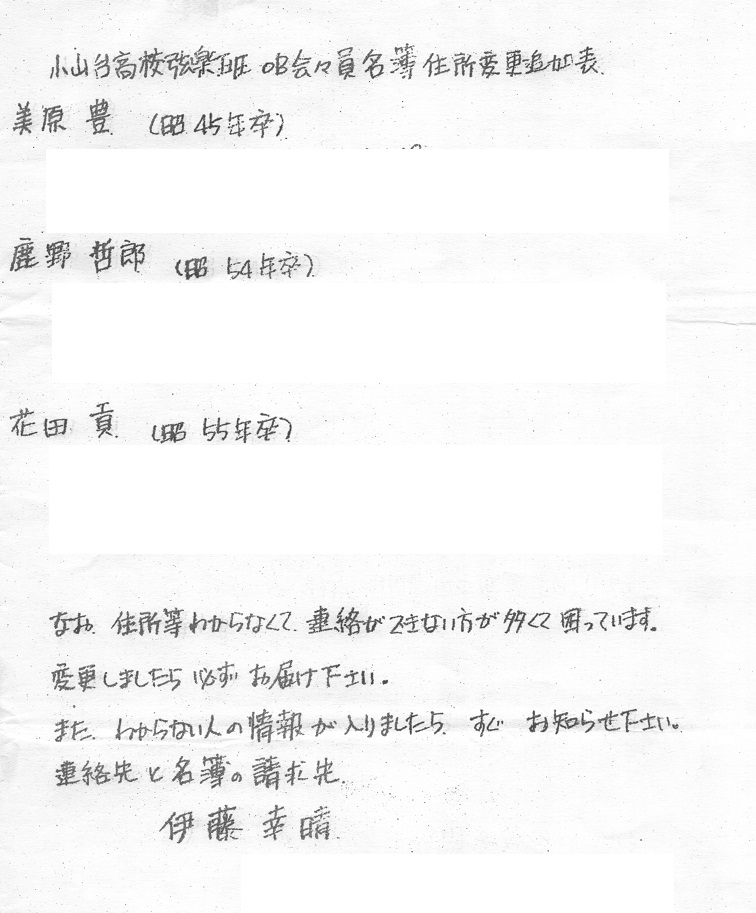 小山台高校弦楽班 OB会々員名簿住所変更追加表
美原 豊 (昭45年卒)
鹿野 哲郎 (昭 54年卒)
花田 貢 (昭 55年卒)
なお、住所等わからなくて、連絡ができない方が多くて困っています。
変更しましたら必ずお届け下さい。
また、わからない人の情報が入りましたら、すぐ お知らせ下さい。
連絡先と名簿の請求先
伊藤 幸晴